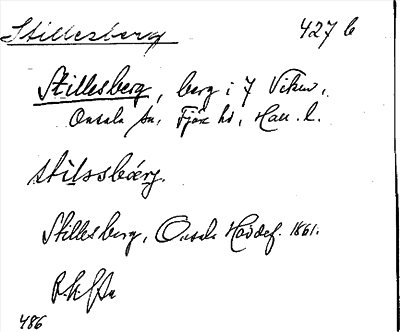 Stillesberg 427 b
Stillesberg, berg i 7 Viken,
Onsala sn, Fjäre hd, Hall. l.
stilssbærg.
Stillesberg, Onsala Havdef. 1861.
486